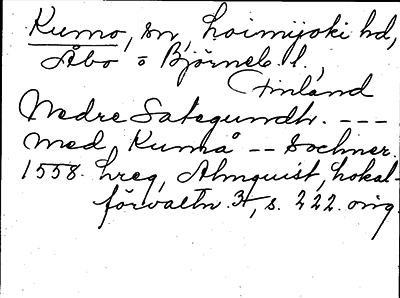 Kumo, sn, Loimijoki hd,
Åbo o Björneb. l,
Finland
Nedre Sategundh. ---
med Kumå -- Sochner.
1558. hreg, Almquist, Lokal-
förvaltn. 3, s. 222. orig.